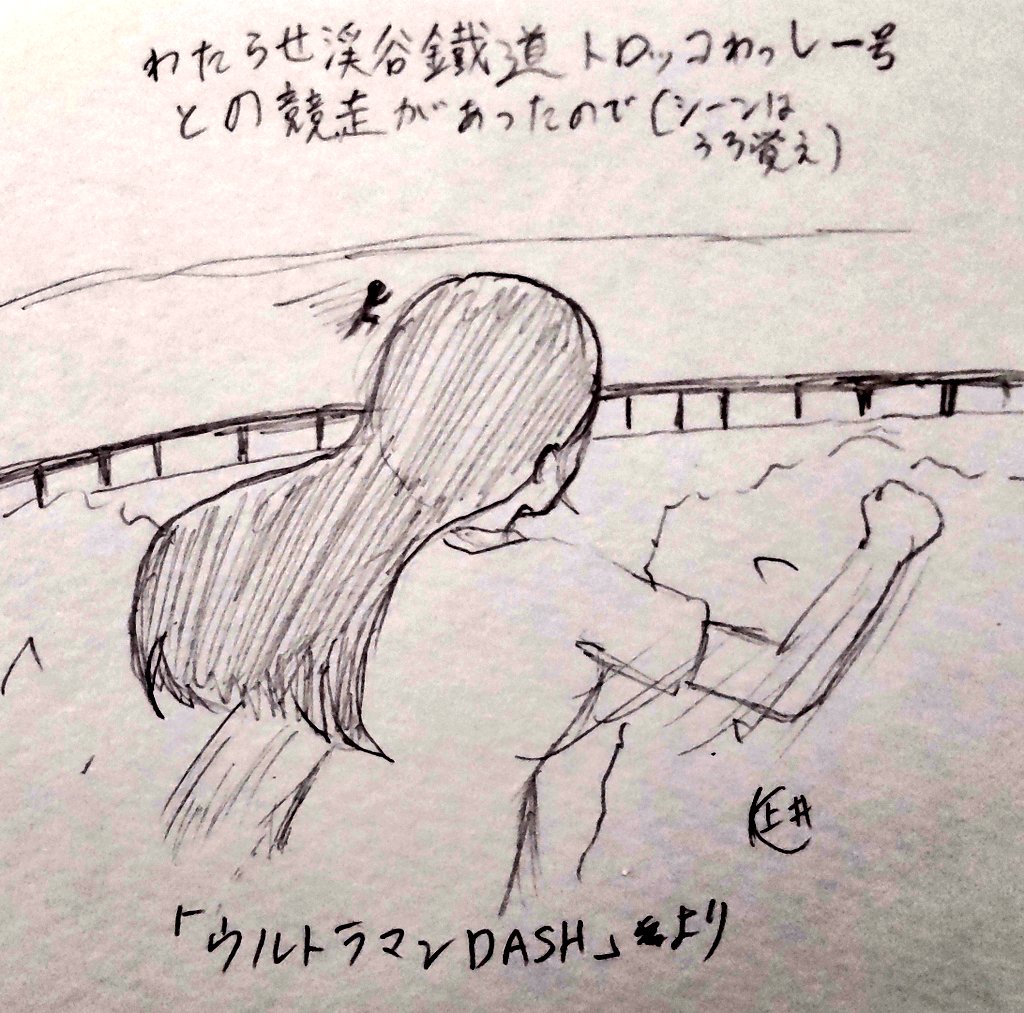 わたらせ渓谷鐵道トロッコわっしー号
との競走があったので(シーンは
うろ覚え)
「ウルトラマンDASH」より